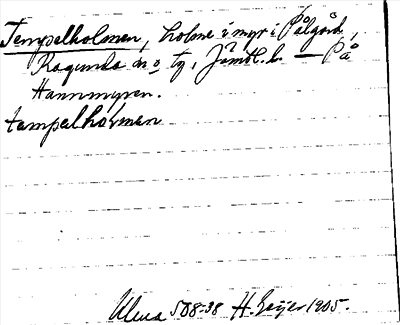 Tempelholmen, holme i myr i Pålgård,
Ragunda sn o tg, Jämtl. l. — På
Hammmyren.
tempəlhòḷmən
Ulma 508:38 H. Geijer 1905.